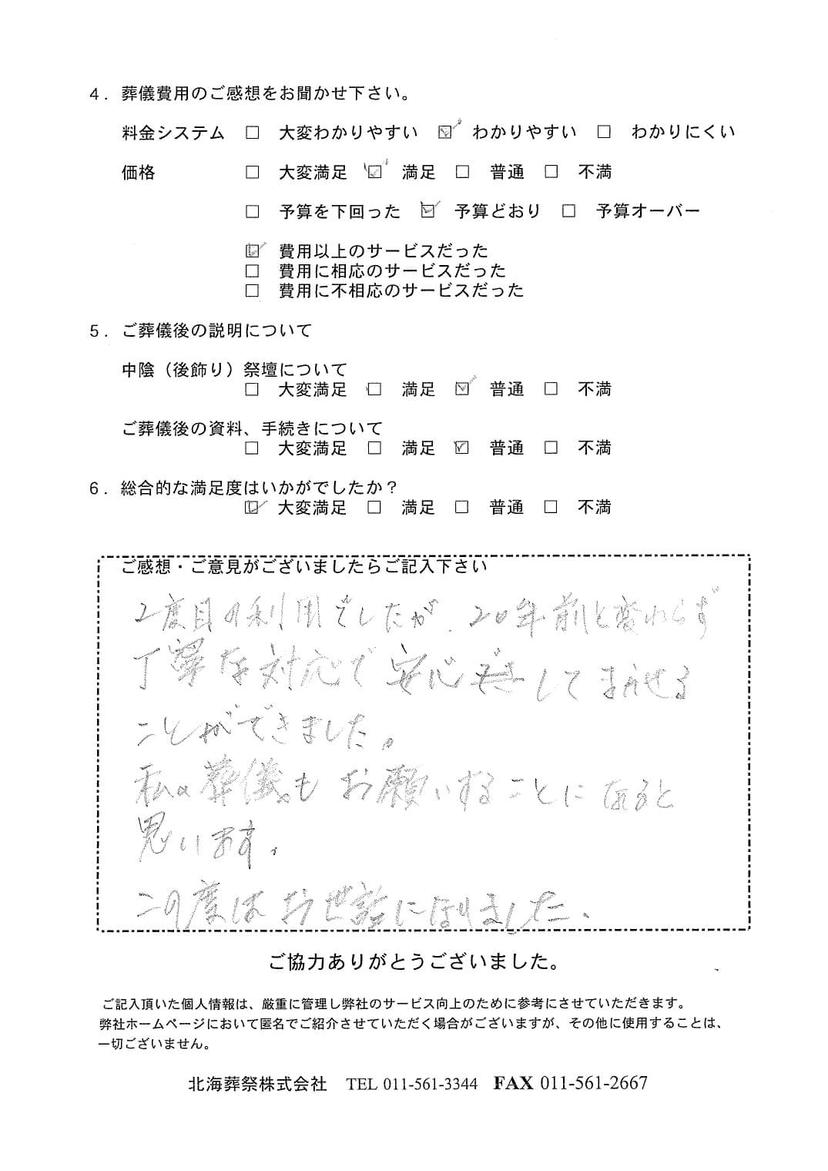 4．葬儀費用のご感想をお聞かせ下さい。
料金システム □ 大変わかりやすい ☑ わかりやすい □ わかりにくい
価格 □ 大変満足 ☑ 満足 □ 普通 □ 不満
□ 予算を下回った ☑ 予算どおり □ 予算オーバー
☑ 費用以上のサービスだった
□ 費用に相応のサービスだった
□ 費用に不相応のサービスだった
5．ご葬儀後の説明について
中陰（後飾り）祭壇について
□ 大変満足 □ 満足 ☑ 普通 □ 不満
ご葬儀後の資料、手続きについて
□ 大変満足 □ 満足 ☑ 普通 □ 不満
6．総合的な満足度はいかがでしたか？
☑ 大変満足 □ 満足 □ 普通 □ 不満
ご感想・ご意見がございましたらご記入下さい
2度目の利用でしたが、20年前と変わらず
丁寧な対応で安心してまかせる
ことができました。
私の葬儀もお願いすることになると
思います。
この度はお世話になりました。
ご協力ありがとうございました。
ご記入頂いた個人情報は、厳重に管理し弊社のサービス向上のために参考にさせていただきます。
弊社ホームページにおいて匿名でご紹介させていただく場合がございますが、その他に使用することは、
一切ございません。
北海葬祭株式会社 TEL 011-561-3344 FAX 011-561-2667